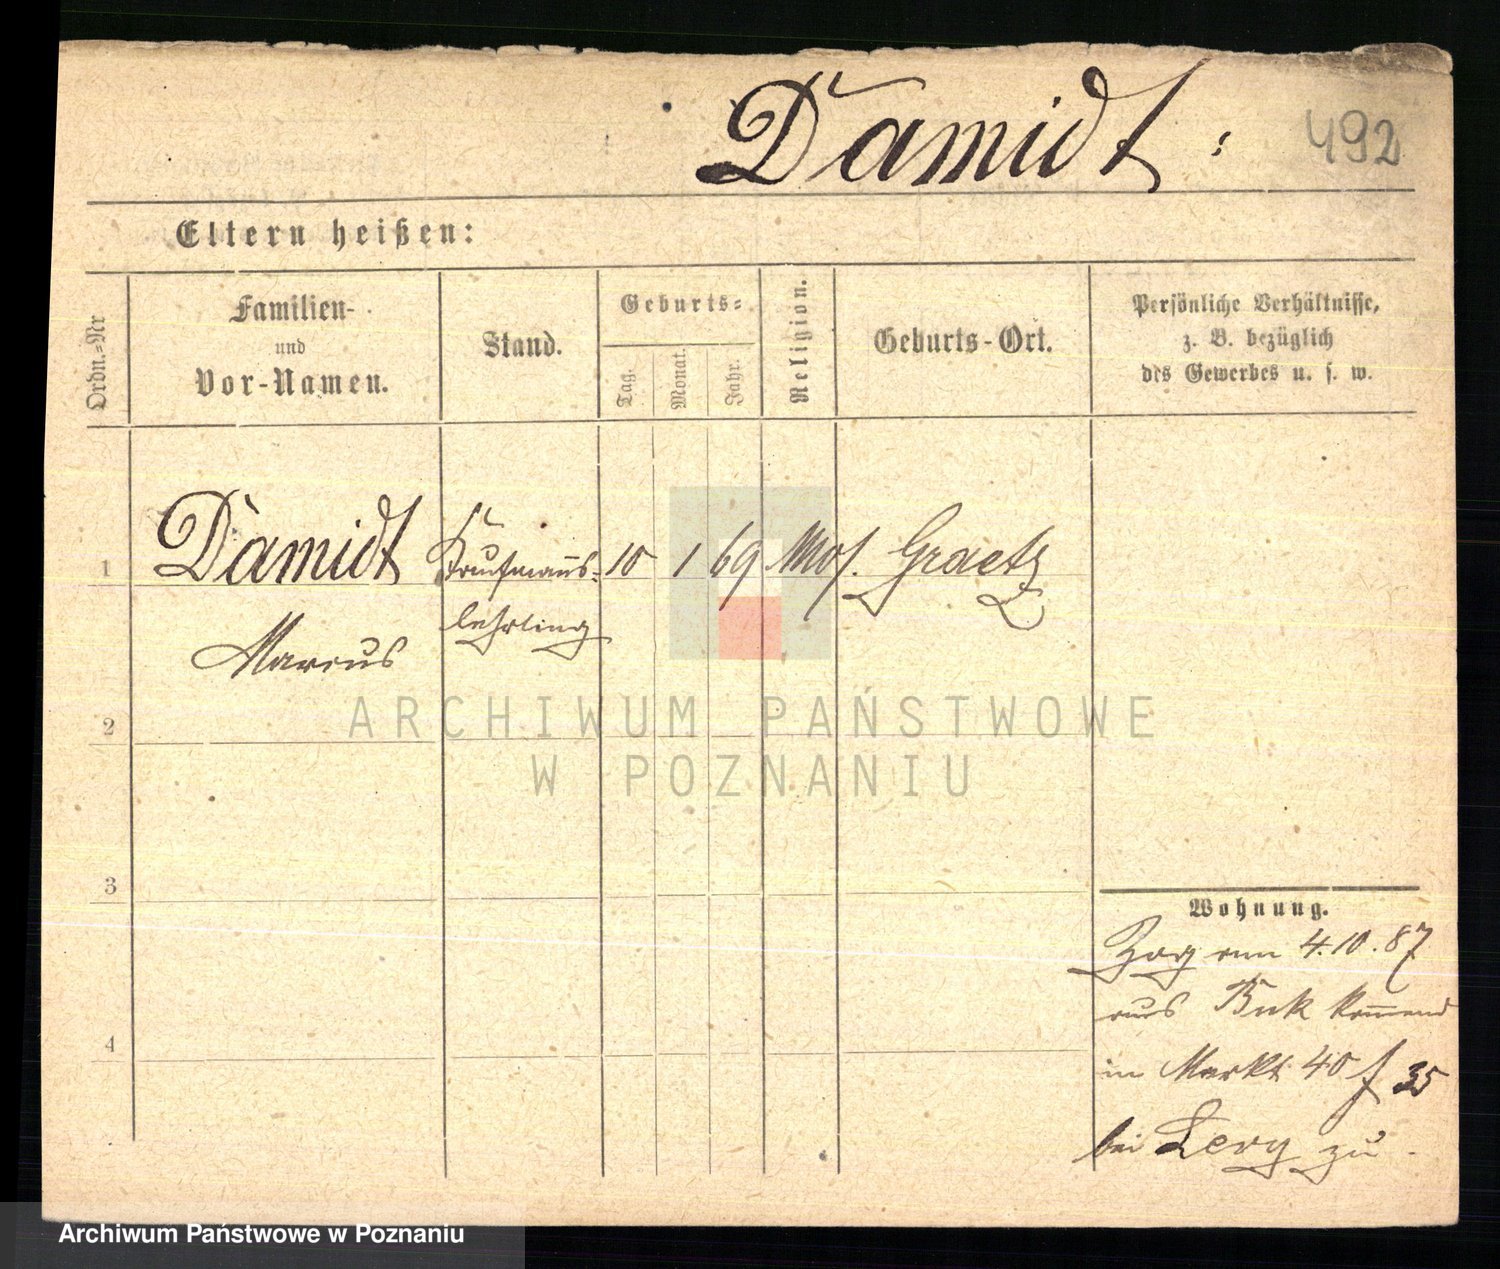 Damidt: 492
Eltern heißen:
Ordn.-Nr
Familien-
und
Vor-Namen.
Stand.
Geburts-
Tag.
Monat.
Jahr.
Religion.
Geburts-Ort.
Persönliche Verhältnisse,
z. B. bezüglich
des Gewerbes u. s. w.
1 Damidt Kaufmanns- 10 1 69 Mos. Graetz
lehrling
Marcus
2
3
4
Wohnung.
Zog am 4.10.87
aus Buk kommend
in Markt 40 f 35
bei Levy zu.
ARCHIWUM PAŃSTWOWE
W POZNANIU
Archiwum Państwowe w Poznaniu